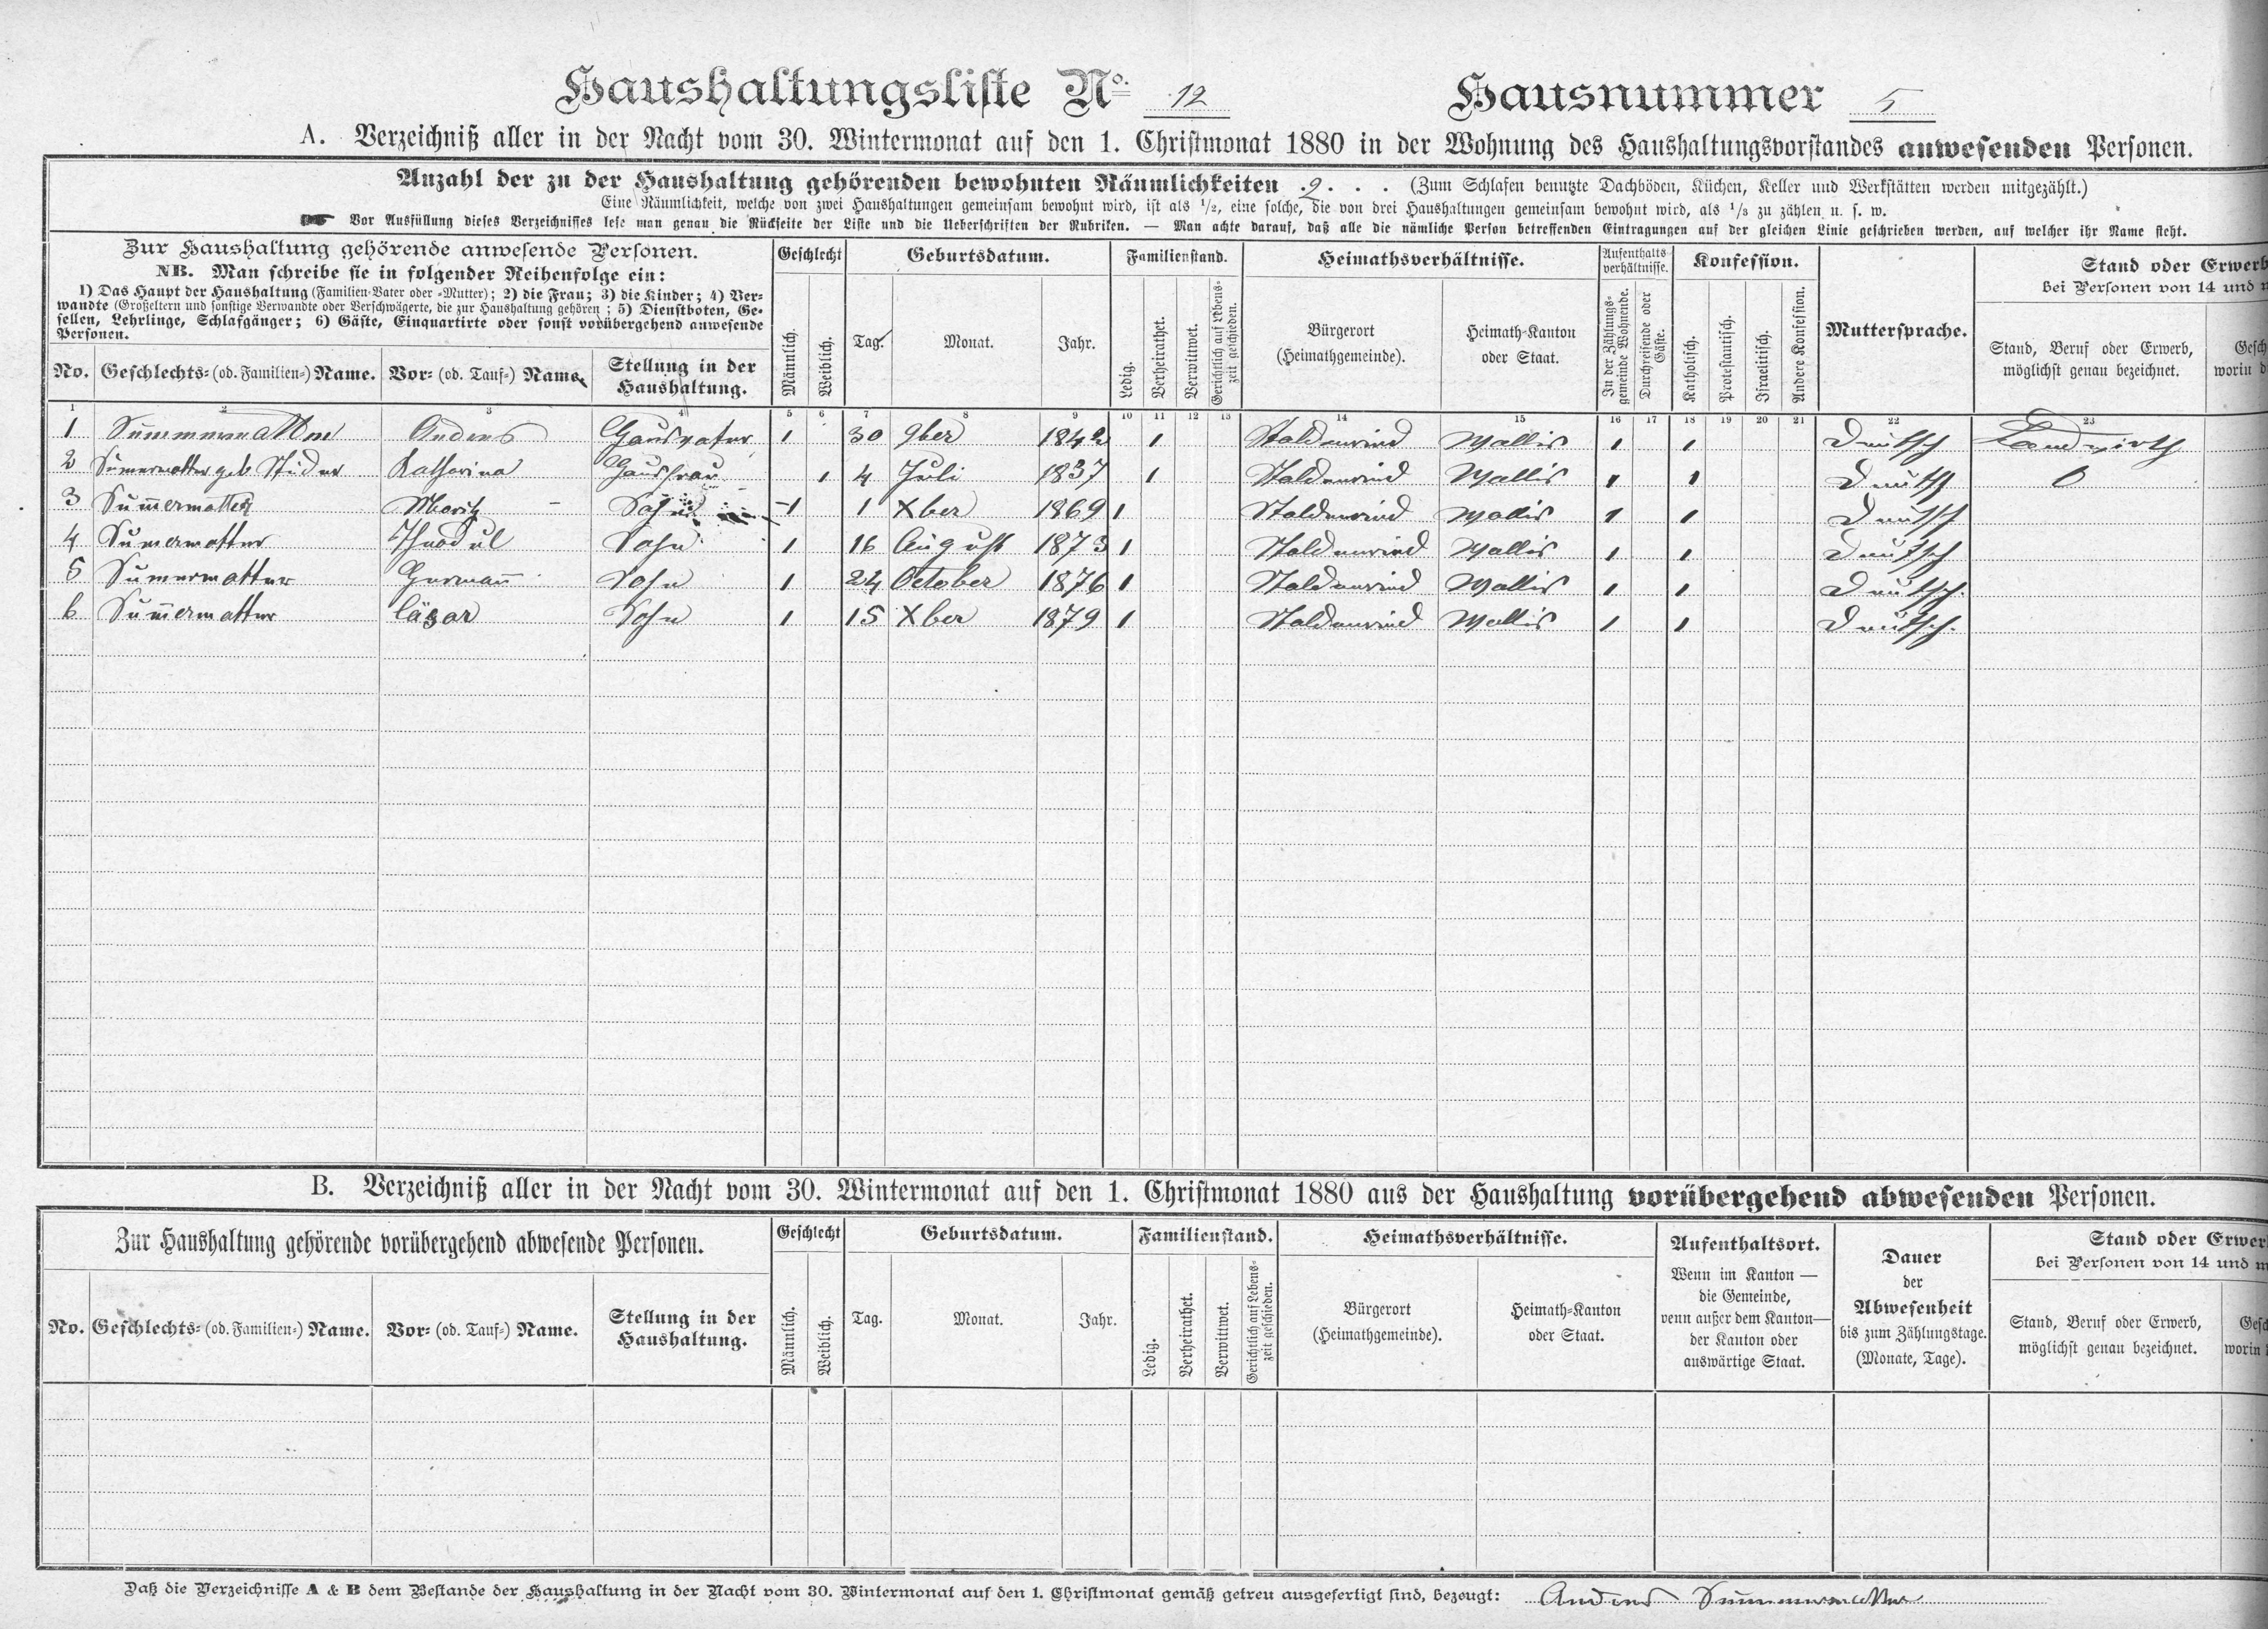 Haushaltungsliste No. 12 Hausnummer 5
A. Verzeichniß aller in der Nacht vom 30. Wintermonat auf den 1. Christmonat 1880 in der Wohnung des Haushaltungsvorstandes anwesenden Personen.
Anzahl der zu der Haushaltung gehörenden bewohnten Räumlichkeiten 2 . . . (Zum Schlafen benutzte Dachböden, Küchen, Keller und Werkstätten werden mitgezählt.)
Eine Räumlichkeit, welche von zwei Haushaltungen gemeinsam bewohnt wird, ist als 1/2, eine solche, die von drei Haushaltungen gemeinsam bewohnt wird, als 1/3 zu zählen u. s. w.
Vor Ausfüllung dieses Verzeichnisses lese man genau die Rückseite der Liste und die Ueberschriften der Rubriken. — Man achte darauf, daß alle die nämliche Person betreffenden Eintragungen auf der gleichen Linie geschrieben werden, auf welcher ihr Name steht.
Zur Haushaltung gehörende anwesende Personen.
NB. Man schreibe sie in folgender Reihenfolge ein:
1) Das Haupt der Haushaltung (Familien-Vater oder -Mutter); 2) die Frau; 3) die Kinder; 4) Ver-
wandte (Großeltern und sonstige Verwandte oder Verschwägerte, die zur Haushaltung gehören; 5) Dienstboten, Ge-
sellen, Lehrlinge, Schlafgänger; 6) Gäste, Einquartirte oder sonst vorübergehend anwesende
Personen.
No. Geschlechts- (od. Familien-) Name. Vor- (od. Tauf-) Name. Stellung in der
Haushaltung.
Geschlecht
Männlich. Weiblich.
Geburtsdatum.
Tag. Monat. Jahr.
Familienstand.
Ledig. Verheirathet. Verwittwet. Gerichtlich auf Lebens-
zeit geschieden.
Heimathsverhältnisse.
Bürgerort
(Heimathgemeinde).
Heimath-Kanton
oder Staat.
Aufenthalts-
verhältnisse.
In der Zählungs-
gemeinde Wohnende.
Durchreisende oder
Gäste.
Konfession.
Katholisch. Protestantisch. Israelitisch. Andere Konfession.
Muttersprache.
Stand oder Erwerb
bei Personen von 14 und
Stand, Beruf oder Erwerb,
möglichst genau bezeichnet.
Gesch
worin d
1 2 3 4 5 6 7 8 9 10 11 12 13 14 15 16 17 18 19 20 21 22 23
1 Summermatter Andres Hausvater 1 30 9ber 1842 1 Staldenried Wallis 1 1 Deutsch Landwirth
2 Sumermatter geb. Studer Katharina Hausfrau 1 4 Juli 1837 1 Staldenried Wallis 1 1 Deutsch 0
3 Sum̄ermatter Moritz Sohn 1 1 Xber 1869 1 Staldenried Wallis 1 1 Deutsch
4 Sumermatter Theodul Sohn 1 16 August 1873 1 Staldenried Wallis 1 1 Deutsch
5 Sumermatter Germañ Sohn 1 24 October 1876 1 Staldenried Wallis 1 1 Deutsch.
6 Sum̄ermatter Cäsar Sohn 1 15 Xber 1879 1 Staldenried Wallis 1 1 Deutsch.
B. Verzeichniß aller in der Nacht vom 30. Wintermonat auf den 1. Christmonat 1880 aus der Haushaltung vorübergehend abwesenden Personen.
Zur Haushaltung gehörende vorübergehend abwesende Personen.
No. Geschlechts- (od. Familien-) Name. Vor- (od. Tauf-) Name. Stellung in der
Haushaltung.
Geschlecht
Männlich. Weiblich.
Geburtsdatum.
Tag. Monat. Jahr.
Familienstand.
Ledig. Verheirathet. Verwittwet. Gerichtlich auf Lebens-
zeit geschieden.
Heimathsverhältnisse.
Bürgerort
(Heimathgemeinde).
Heimath-Kanton
oder Staat.
Aufenthaltsort.
Wenn im Kanton —
die Gemeinde,
wenn außer dem Kanton—
der Kanton oder
auswärtige Staat.
Dauer
der
Abwesenheit
bis zum Zählungstage.
(Monate, Tage).
Stand oder Erwer
bei Personen von 14 und m
Stand, Beruf oder Erwerb,
möglichst genau bezeichnet.
Gesch
worin
Daß die Verzeichnisse A & B dem Bestande der Haushaltung in der Nacht vom 30. Wintermonat auf den 1. Christmonat gemäß getreu ausgefertigt sind, bezeugt: Andres Summermatter